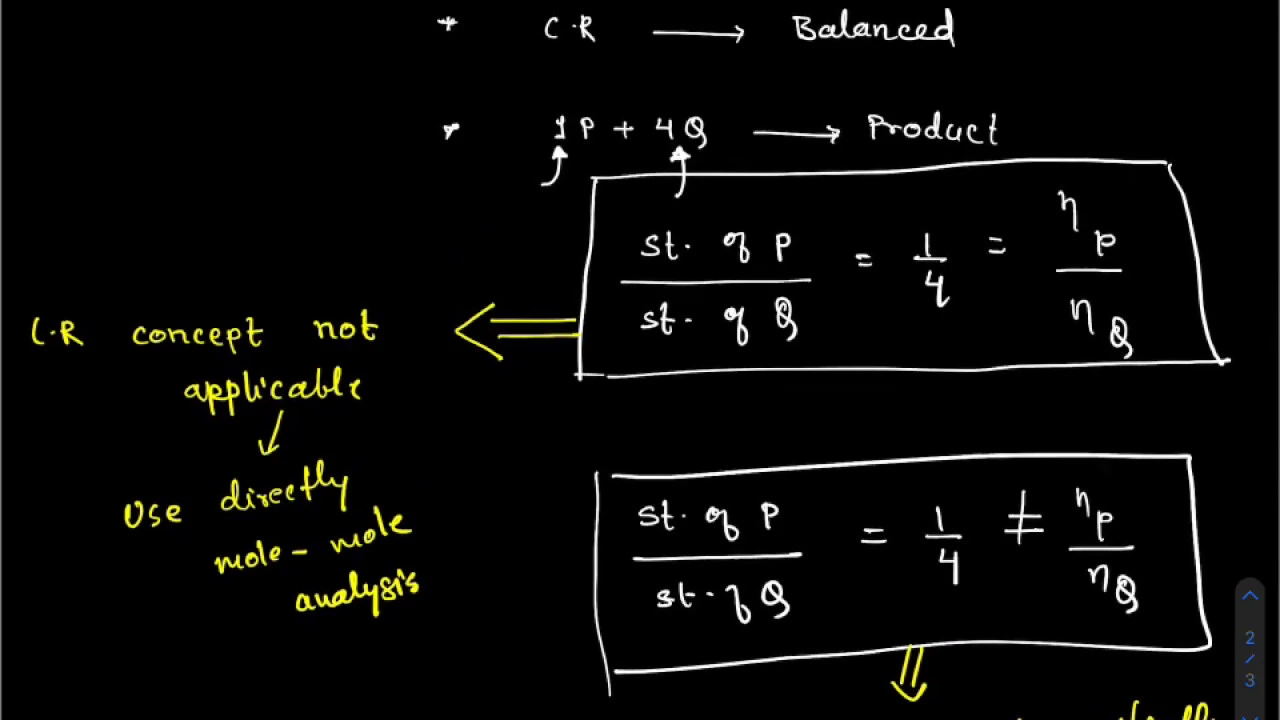 * C.R ⟶ Balanced
* 1P + 4Q ⟶ Product
st. of P / st. of Q = 1/4 = ηP / ηQ
C.R concept not
applicable
↓
Use directly
mole - mole
analysis
st. of P / st. of Q = 1/4 ≠ ηP / ηQ
2
/
3